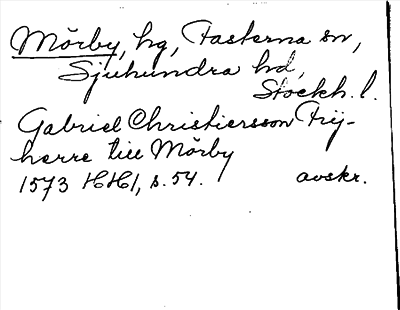 Mörby, hg, Fasterna sn,
Sjuhundra hd,
Stockh. l.
Gabriel Christiersson Frij-
herre till Mörby
1573 HH1, s. 54. avskr.